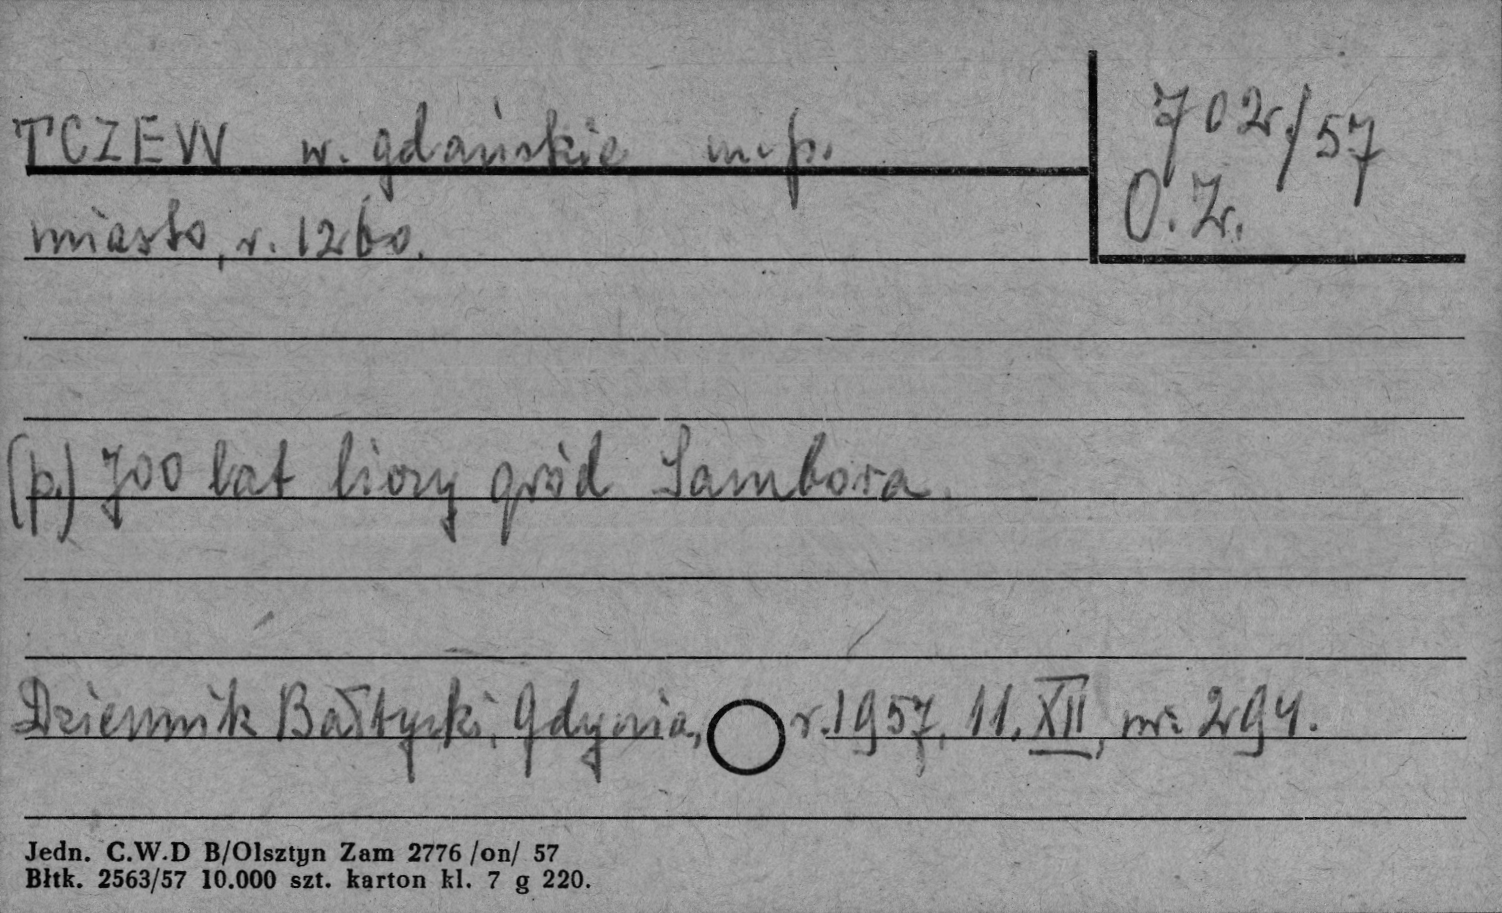 TCZEW w. gdańskie m.p.
702/57
O.Z.
miasto, r. 1260.
(p.) 700 lat liczy gród Sambora.
Dziennik Bałtycki, Gdynia, r. 1957, 11. XII, nr. 294.
Jedn. C.W.D B/Olsztyn Zam 2776 /on/ 57
Błtk. 2563/57 10.000 szt. karton kl. 7 g 220.